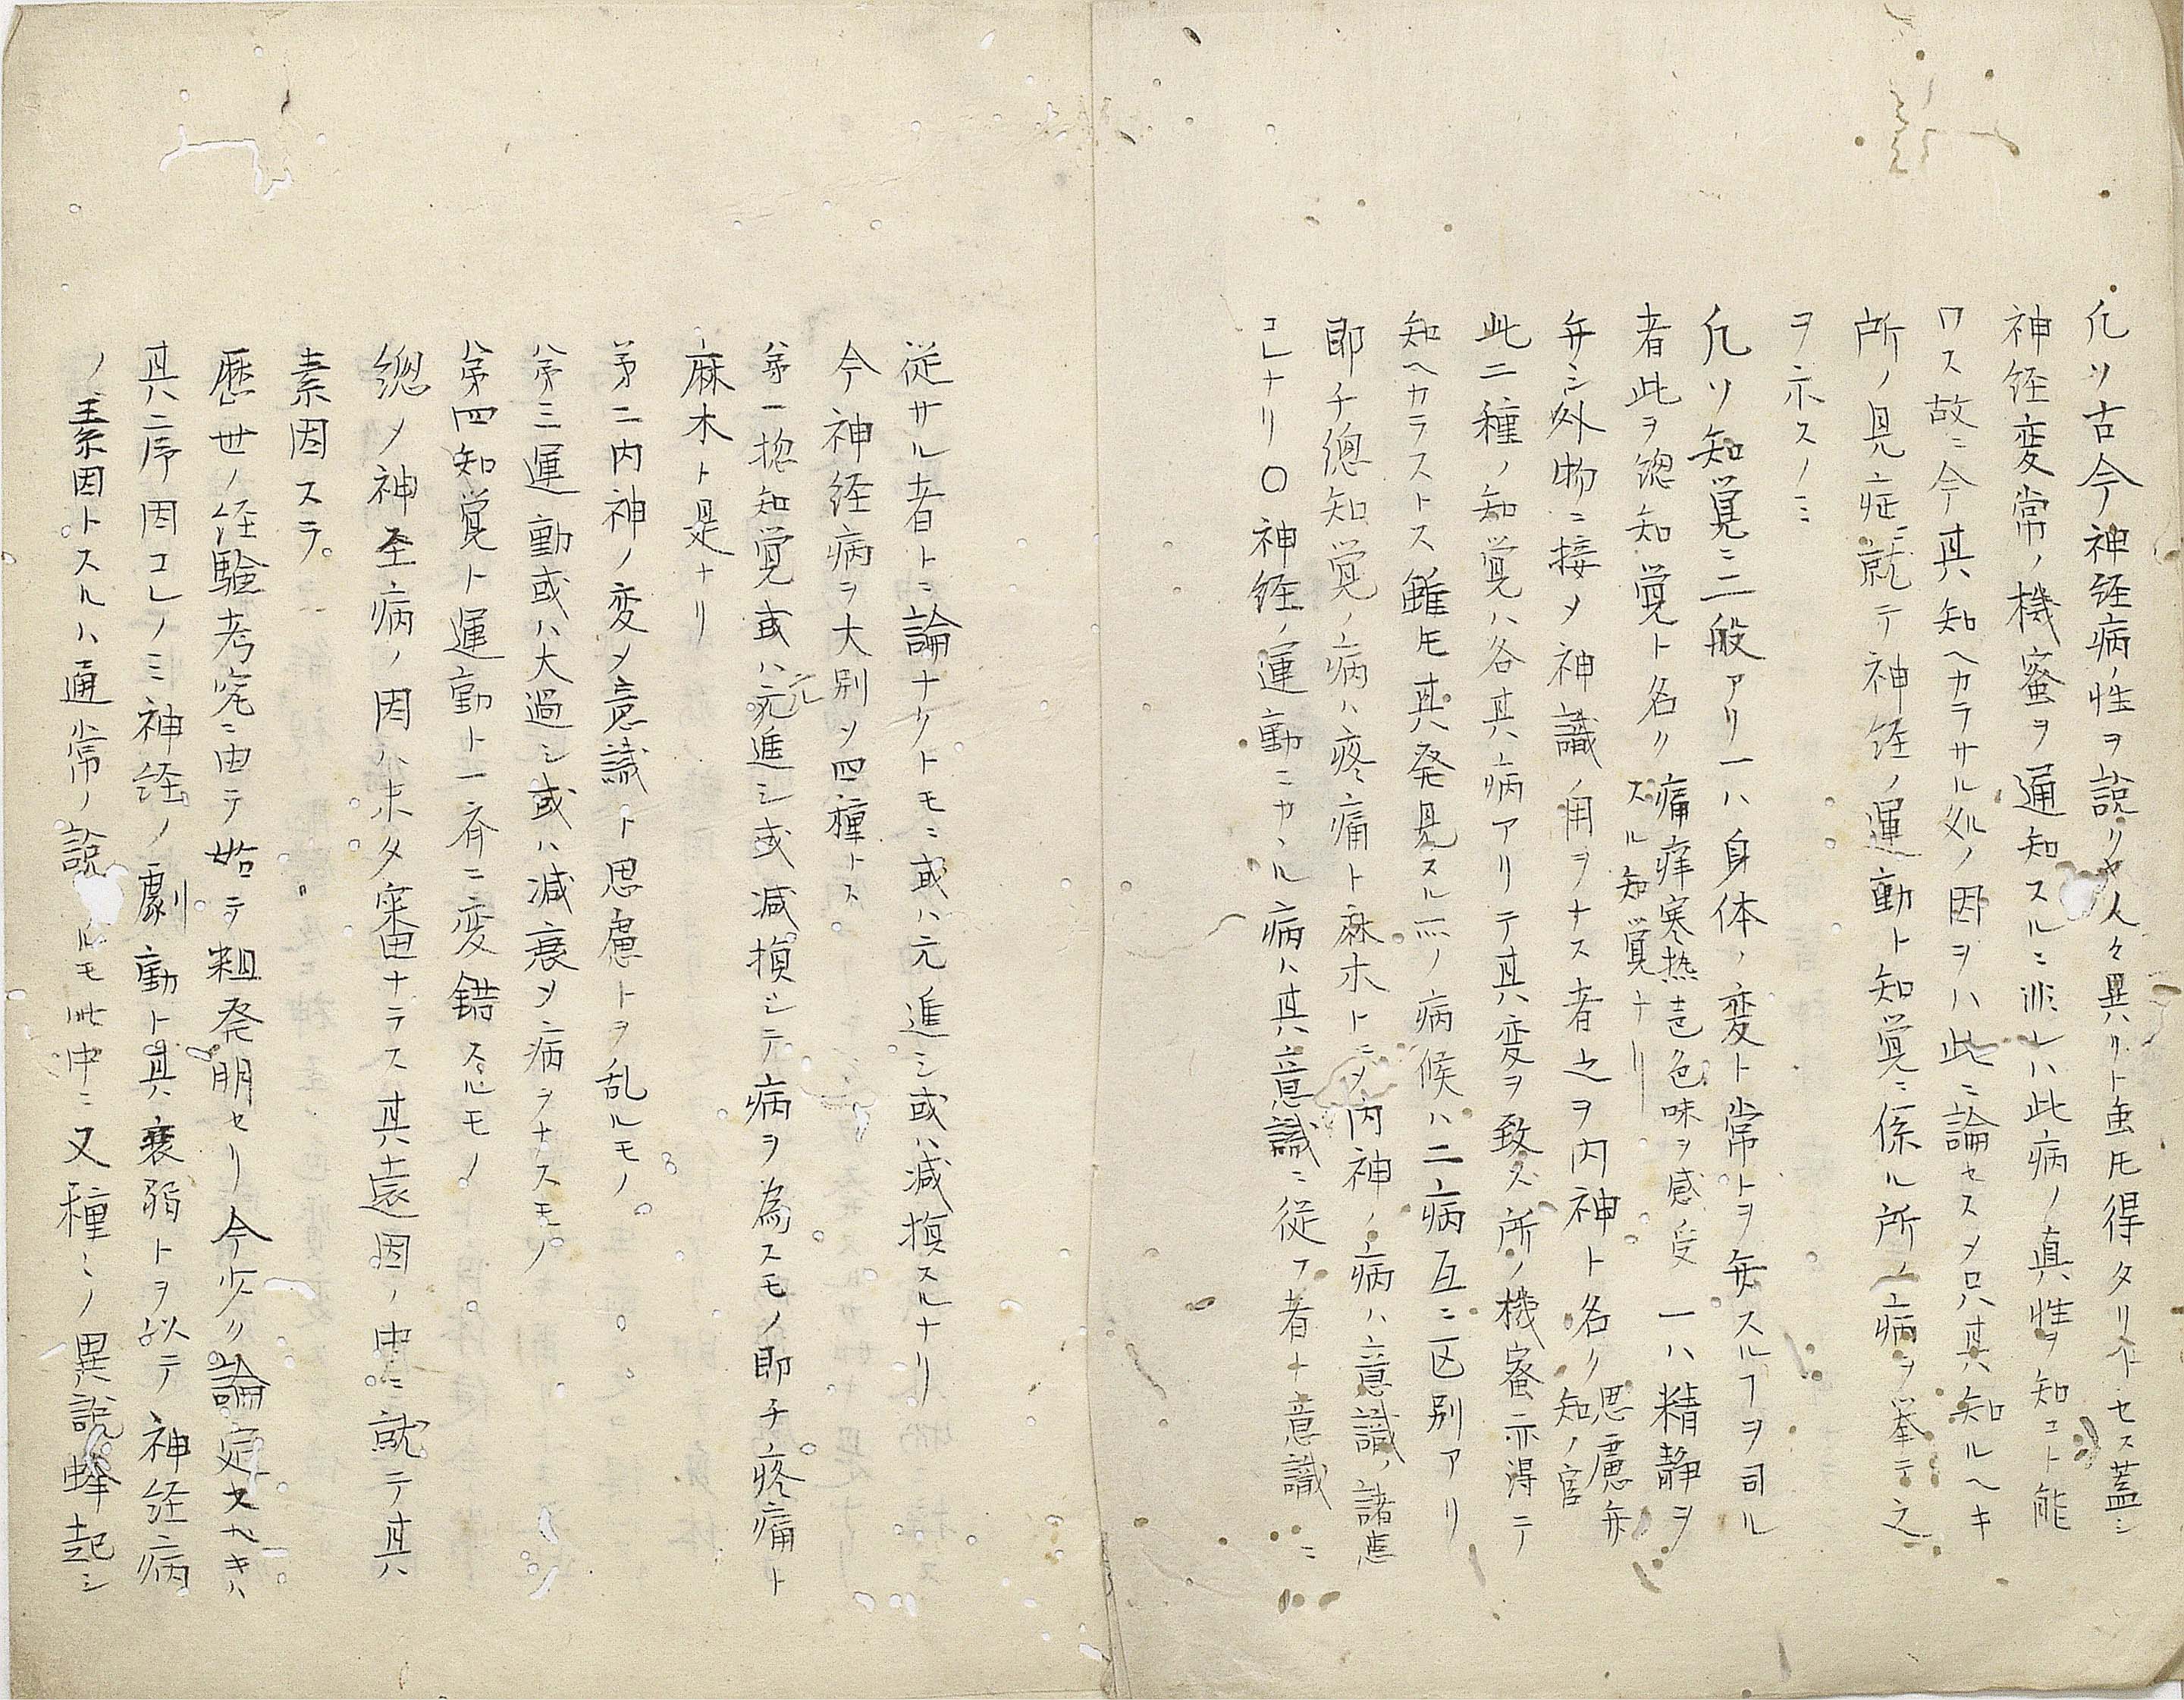 凡ソ古今神経病ノ性ヲ説クヤ人々異リト虽𪜈得タリトセス蓋シ
神経変常ノ機蜜ヲ通知スルニ非レハ此病ノ真性ヲ知コト能
ワス故ニ今其知ヘカラサル処ノ因ヲハ此ニ論セスメ只其知ルヘキ
所ノ見症ニ就テ神経ノ運動ト知覚ニ係ル所ノ病ヲ挙テ之
ヲ示スノミ
凡ソ知覚ニ二般アリ一ハ身体ノ変ト常トヲ弁スルヿヲ司ル
者此ヲ総知覚ト名ク 痛痒寒热声色味ヲ感受
スル知覚ナリ 一ハ精静ヲ
弁シ外物ニ接メ神識ノ用ヲナス者之ヲ内神ト名ク 思慮弁
知ノ官
此二種ノ知覚ハ各其病アリテ其変ヲ致ス所ノ機蜜亦得テ
知ヘカラストス雖𪜈其発見スル ノ病候ハ二病互ニ区別アリ
即チ総知覚ノ病ハ疼痛ト麻木トニメ内神ノ病ハ意識ノ諸患
コレナリ〇神経ノ運動ニカヽル病ハ其意識ニ従フ者ナ意識ニ
従サル者トニ論ナクトモニ或ハ亢進シ或ハ減損スルナリ
今神経病ヲ大別メ四種トス
第一揔知覚或ハ亢進シ或減損シテ病ヲ為スモノ即チ疼痛ト
麻木ト是ナリ
第二内神ノ変メ意識ト思慮トヲ乱ルモノ
第三運動或ハ大過シ或ハ減衰メ病ヲナスモノ
第四知覚ト運動ト一斉ニ変錯スルモノ
總ノ神経病ノ因ハ未タ審ナラス其遠因ノ中ニ就テ其
素因スラ
歴世ノ経験考究ニ由テ始テ粗発明セリ今少ク論定スヘキハ
其二序因コレノミ神経ノ劇動ト其衰弱トヲ以テ神経病
ノ素因トスルハ通常ノ説 ルモ此中ニ又種ミノ異説蜂起シ